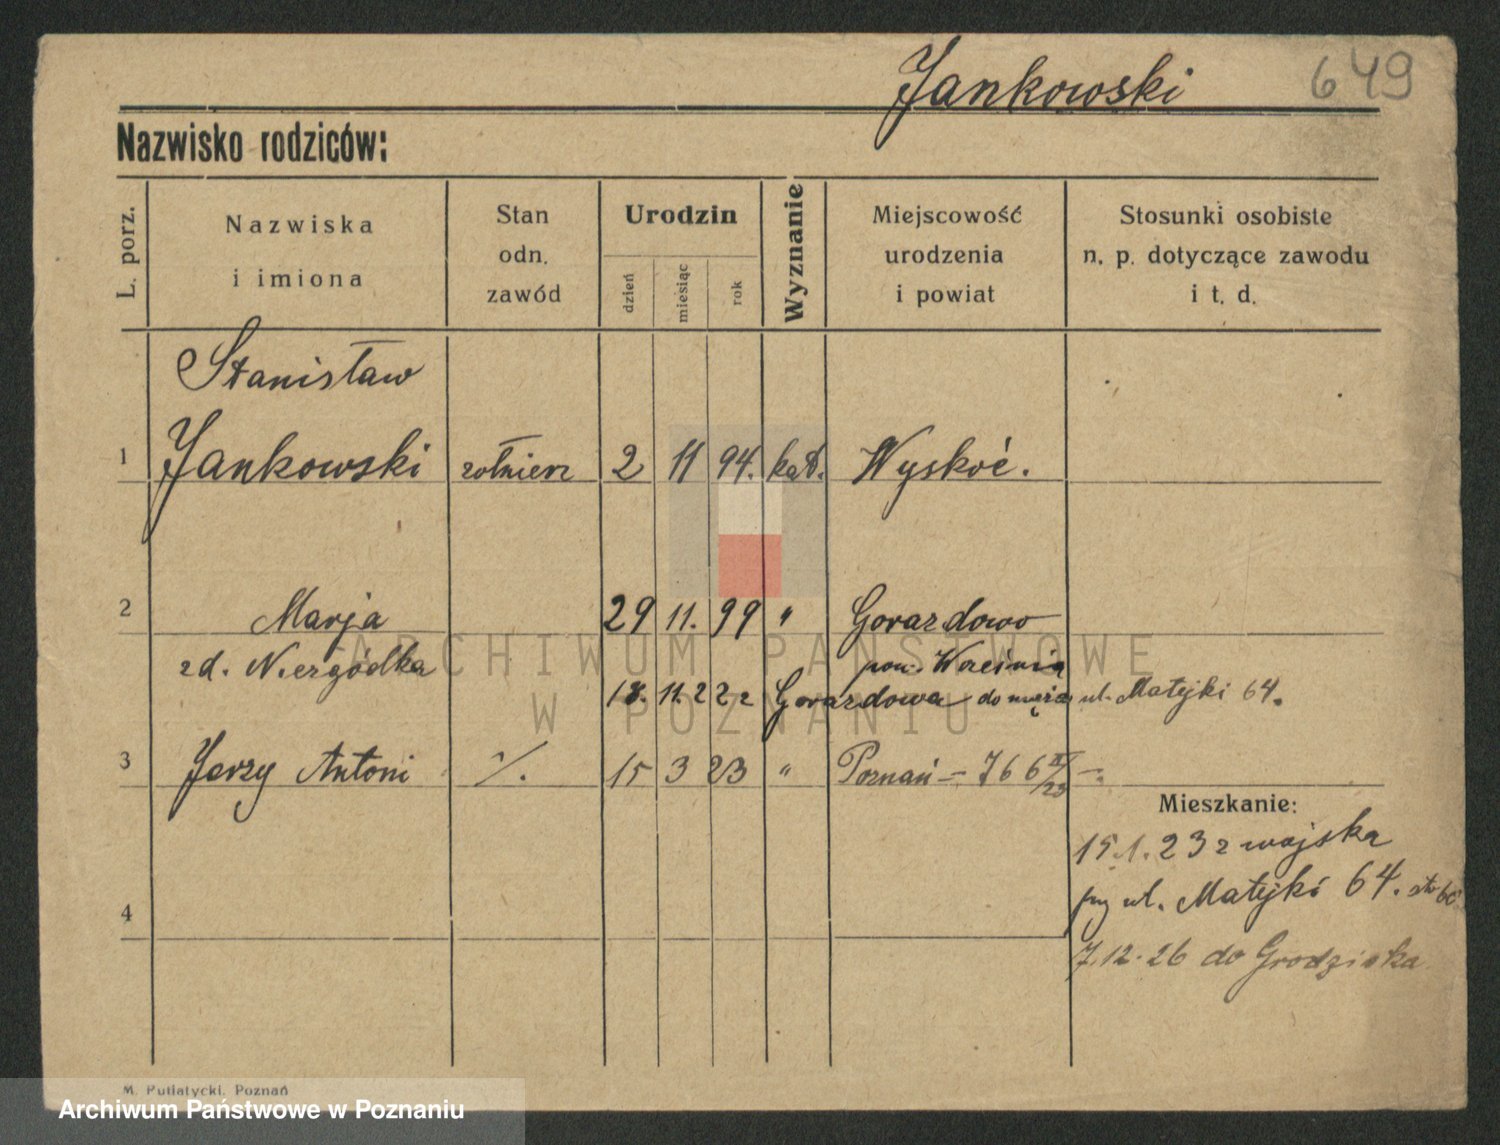 Jankowski 649
Nazwisko rodziców:
L. porz.
Nazwiska
i imiona
Stan
odn.
zawód
Urodzin
dzień
miesiąc
rok
Wyznanie
Miejscowość
urodzenia
i powiat
Stosunki osobiste
n. p. dotyczące zawodu
i t. d.
Stanisław
1 Jankowski żołnierz 2 11 94. kat. Wyskoć.
2 Marja 29 11. 99 " Gorazdowo
zd. Niezgódka pow. Września
18. 11. 22 Gorazdowa do męża ul. Matejki 64.
3 Jerzy Antoni /. 15 3 23 " Poznań – 766 II/23 –.
Mieszkanie:
15.1.23 z wojska
przy ul. Matejki 64.
4
7.12.26 do Grodziska
M. Putiatycki, Poznań
ARCHIWUM PAŃSTWOWE
W POZNANIU
Archiwum Państwowe w Poznaniu